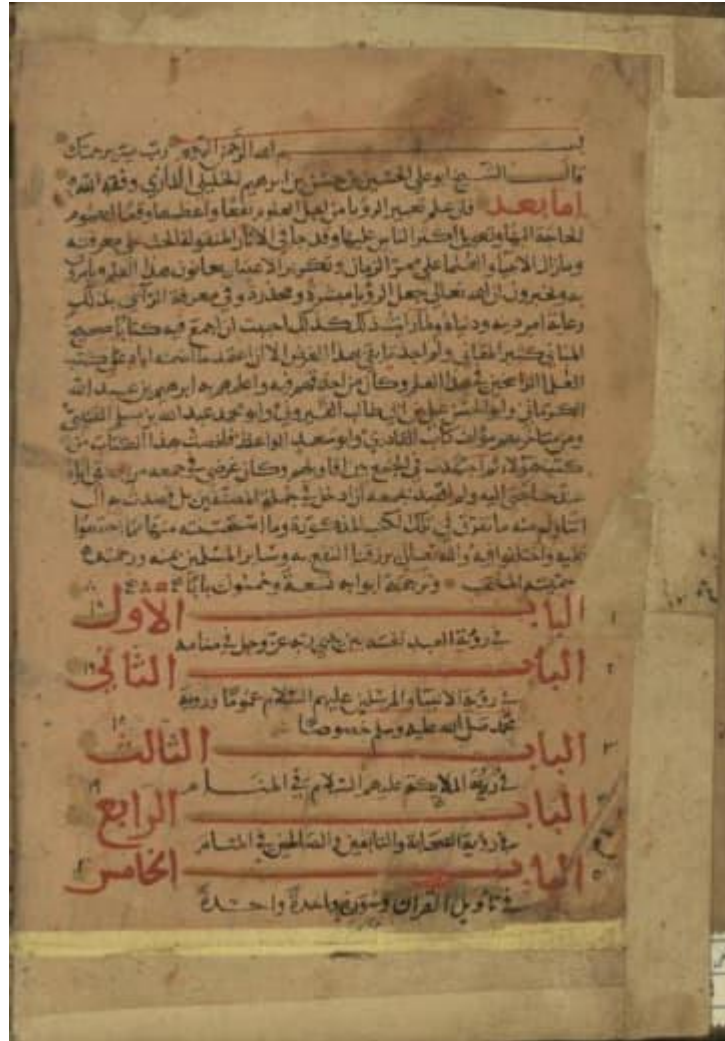 بسم الله الرحمن الرحيم رب يسر برحمتك
قال الشيخ ابو علي الحسين بن حسن بن ابرهيم الخليلي الداري وفقه الله
اما بعد فان علم تعبير الرؤيا من العلوم نفعا واعظمها وقعا
للحاجة اليها وتعويل اكثر الناس عليها وقد جا في الاثار المنقولة الحث على معرفته
وما زال الانبيا والعلما على ممر الزمان هذا العلم
به ويخبرون ان الله تعالى جعل الرؤيا مبشرة ومحذرة وفي معرفة الرآئي بذلك
رعاية امر دينه ودنياه كذلك احببت ان اجمع فيه كتابا صحيح
المباني كثير المعاني ولم اجد الا ان اعتمد على كتب
العلما هذا العلم وكان من ابرهيم بن عبد الله
الكرماني وابو الحسن علي بن ابي طالب القيرواني وابو محمد عبد الله بن مسلم القتيبي
ومن كتاب القادري وابو سعيد الواعظ فلخصت هذا الكتاب من
كتب هؤلاء ثم اجتهدت في الجمع بين اقاويلهم وكان غرضي في جمعه
حاجتي اليه ولم اقصد بجمعه ان ادخل في جملة المصنفين بل قصدت به ان
اتناول منه ما تفرق في تلك الكتب المذكورة وما استحسنته منها مما اجتمعوا
عليه واختلفوا فيه والله تعالى يرزقنا النفع به وساير المسلمين بمنه ورحمته
وترجمة ابوابه تسعة وخمسون بابا
١ الباب الاول
في رؤية العبد نفسه بين يدي ربه عز وجل في منامه
٢ الباب الثاني
في رؤية الانبيا والمرسلين عليهم السلام عموما ورؤية
محمد صلى الله عليه وسلم خصوصا
٣ الباب الثالث
في رؤية الملايكة عليهم السلام في المنام
الباب الرابع
في رؤية الصحابة والتابعين والصالحين في المنام
٥ الباب الخامس
في تأويل القران وسوره واحدة واحدة